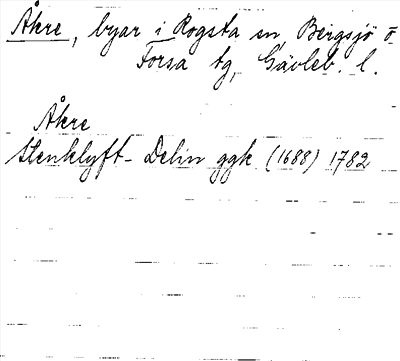 Åkre, byar i Rogsta sn, Bergsjö o
Forsa tg, Gävleb. l.
Åkre
Stenklyft- Delin ggk (1688) 1782